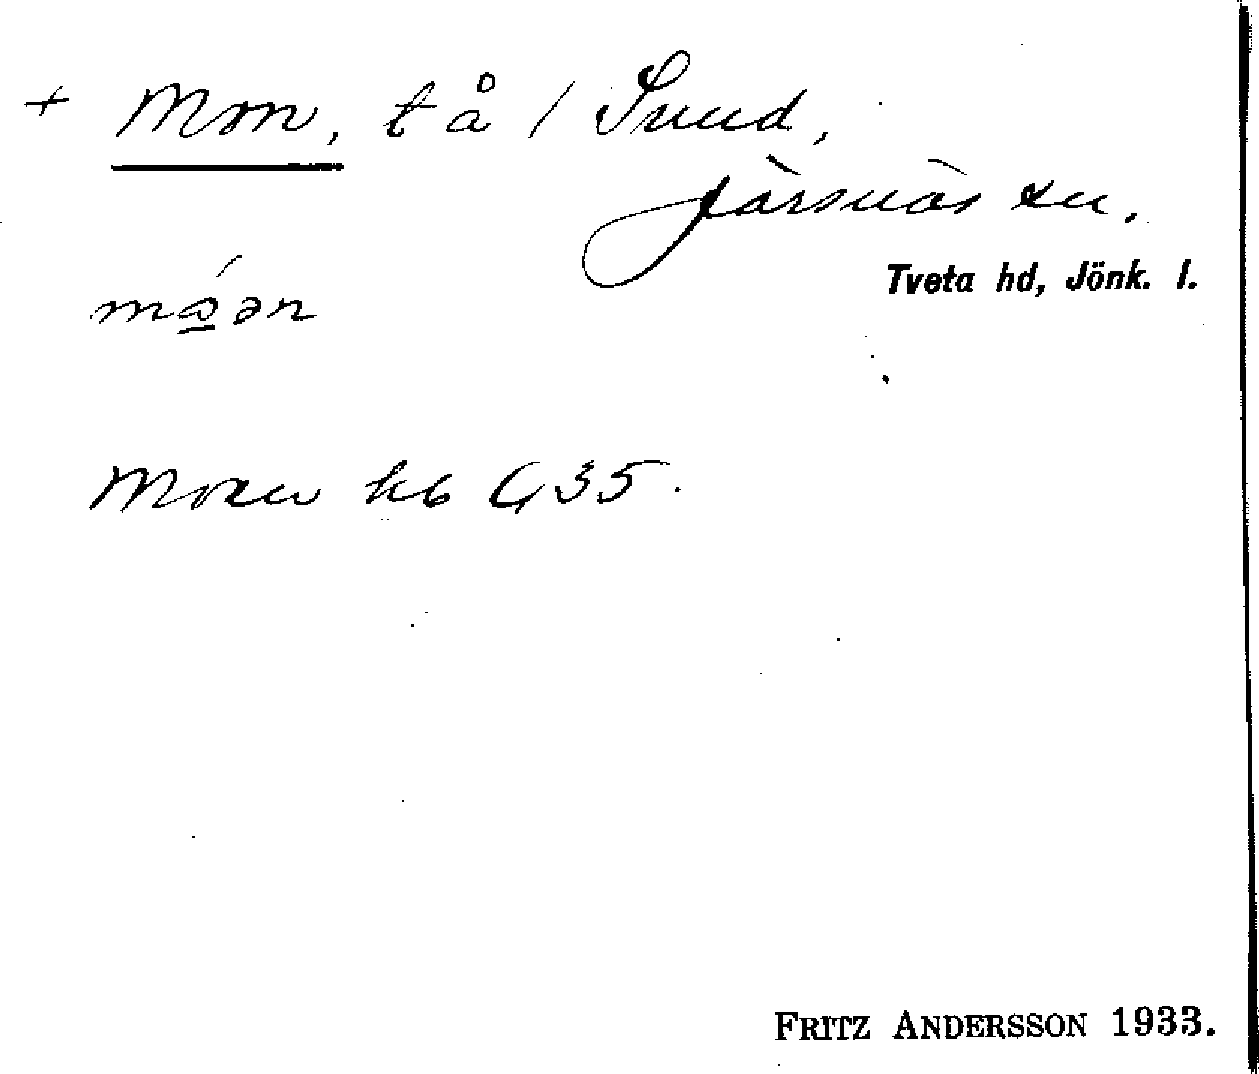 + Mon, tå / Sund,
Järsnäs sn.
Tveta hd, Jönk. l.
Moen hb C, 35.
FRITZ ANDERSSON 1933.